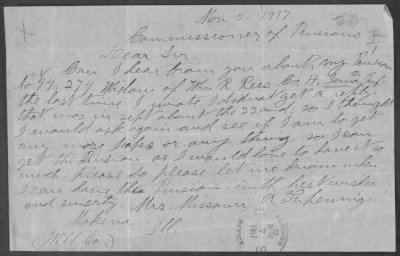 Nov 5. 1917.
Commissioner of Pensions
Dear Sir.
Can I hear from you about my Pension
No 74,279 Widow of Wm R Rees Co H. Inf
the last time I wrote I didnt get a reply.
that was in Sept about the 22and, so I thought
I would ask again and see if I am to get
any more paper or any thing so I can
get the Pension as I would love to have it so
much please do please let me know when
I can have this Pension with best wishes
and
Mrs. Missouri A.
Mokena Ill.
(Will Co.)
7
1917